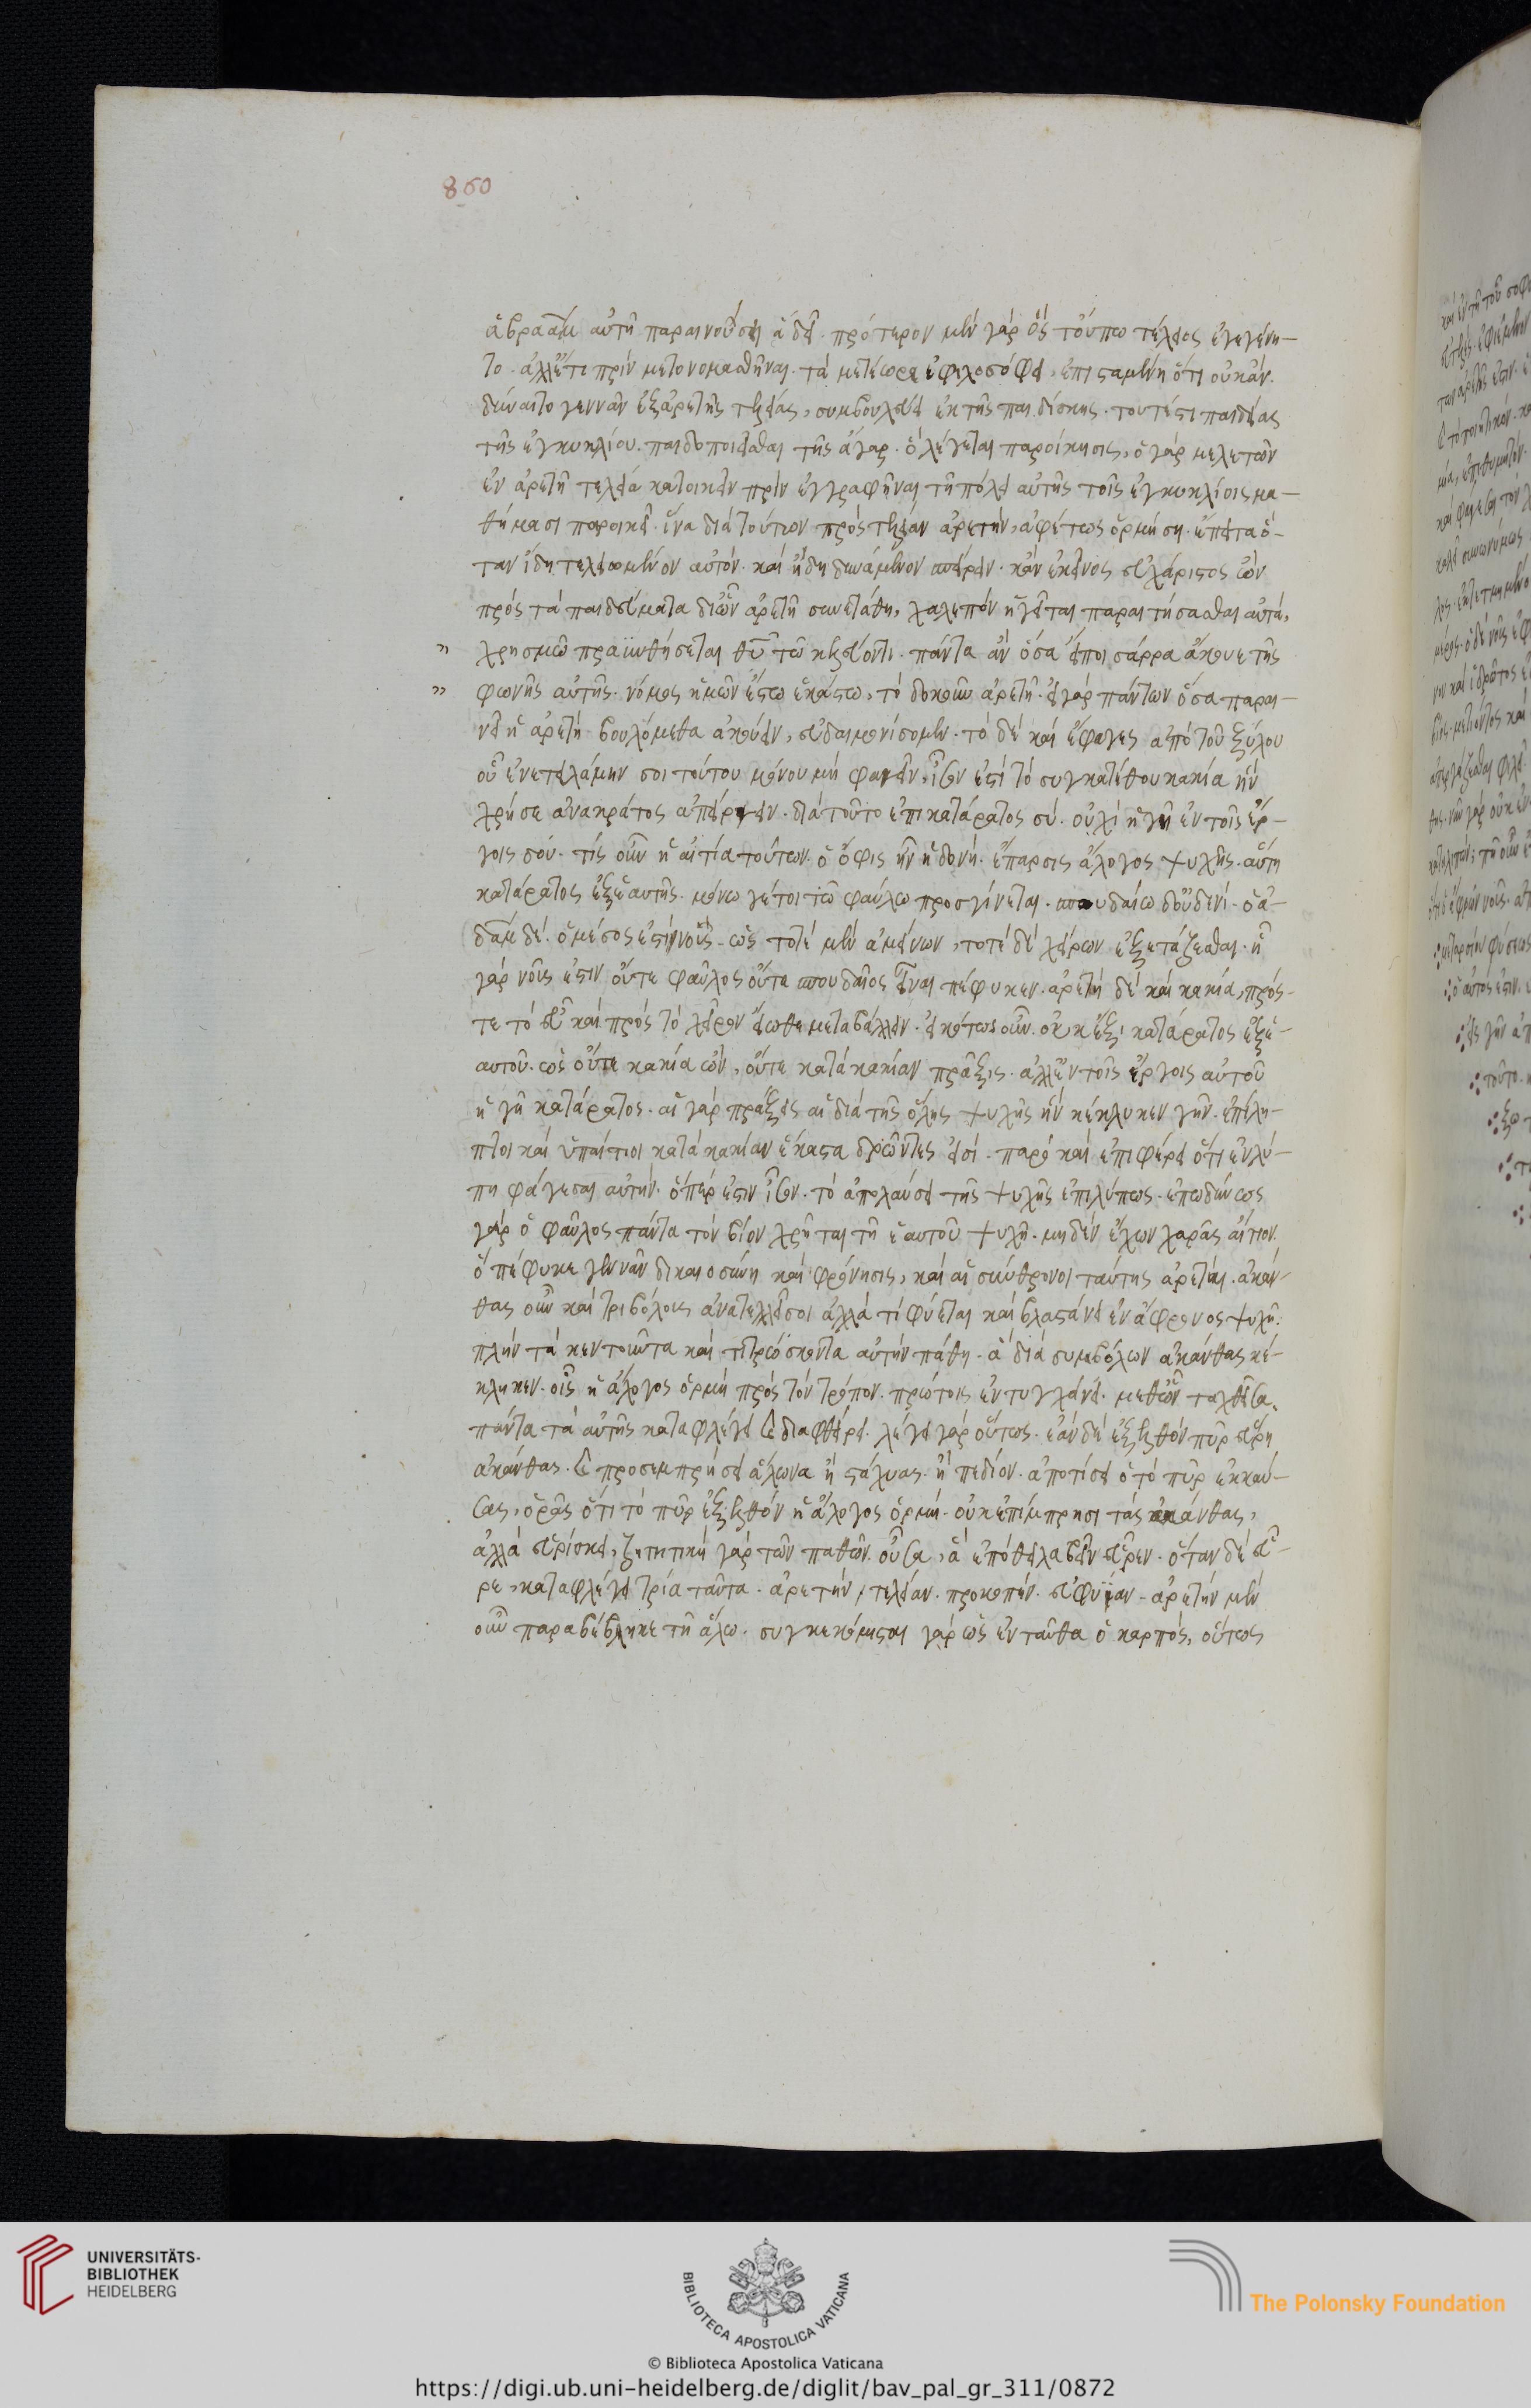 860
ἀβραὰμ αὐτῇ παραινούσῃ ἃ δεῖ. πρότερον μὲν γὰρ ὃς τοὔπω τέλειος ἐγεγένη-
το. ἀλλ' ἔτι πρὶν μετονομασθῆναι. τὰ μετέωρα ἐφιλοσόφει, ἐπισταμένη ὅτι οὐκ ἂν
δύναιτο γεννᾶν ἐξ ἀρετῆς τελείας, συμβουλεύει ἐκ τῆς παιδίσκης. τουτέστι παιδείας
τῆς ἐγκυκλίου. παιδοποιεῖσθαι τῆς ἄγαρ. ὃ λέγεται παροίκησις, ὁ γὰρ μελετῶν
ἐν ἀρετῇ τελεία κατοικεῖν πρὶν ἐγγραφῆναι τῇ πόλει αὐτῆς τοῖς ἐγκυκλίοις μα-
θήμασι παροικεῖ. ἵνα διὰ τούτων πρὸς τελείαν ἀρετὴν, ἀφέτως ὁρμήσῃ. ἔπειτα ὅ-
ταν ἴδῃ τελειούμενον αὐτόν. καὶ ἤδη δυνάμενον σπείρειν. κἂν ἐκεῖνος εὐχάριστος ὢν
πρὸς τὰ παιδεύματα δι' ὧν ἀρετῇ συνεστάθη, χαλεπὸν ἡγεῖται παραιτήσασθαι αὐτά,
" χρησμῷ πραϋνθήσεται θεοῦ τῷ κελεύοντι. πάντα ἂν ὅσα εἴποι σάρρα ἄκουε τῆς
" φωνῆς αὐτῆς. νόμος ἡμῶν ἔστω ἑκάστω, τὸ δοκοῦν ἀρετῇ. εἰ γὰρ πάντων ὅσα παραι-
νεῖ ἡ ἀρετὴ βουλόμεθα ἀκούειν, εὐδαιμονίσομεν. τὸ δὲ καὶ ἔφαγες ἀπὸ τοῦ ξύλου
οὗ ἐνετειλάμην σοι τούτου μόνου μὴ φαγεῖν, ἴσον ἐστὶ τὸ συγκατέθου κακία ἣν
χρή σε ἀνακράτος ἀπείργειν. διὰ τοῦτο ἐπικατάρατος σύ. οὐχὶ ἡ γῆ ἐν τοῖς ἔρ-
γοις σού. τίς οὖν ἡ αἰτία τούτων. ὁ ὄφις ἦν ἡδονή. ἔπαρσις ἄλογος ψυχῆς. αὕτη
κατάρατος ἐξ ἑαυτῆς. μόνω γέ τοι τῷ φαύλω προσγίνεται. σπουδαίω δ' οὐδενί. ὁ ἀ-
δὰμ δὲ. ὁ μέσος ἐστὶ νοῦς. ὡς τοτὲ μὲν ἀμείνων, τοτὲ δὲ χείρων ἐξετάζεσθαι. ᾗ
γὰρ νοῦς ἐστιν οὔτε φαῦλος οὔτε σπουδαῖος εἶναι πέφυκεν. ἀρετῇ δὲ καὶ κακία, πρός-
τε τὸ εὖ καὶ πρὸς τὸ χεῖρον εἴωθε μεταβάλλειν. εἰκότως οὖν. οὐκ ἔστι κατάρατος ἐξ ἑ-
αυτοῦ. ὡς οὔτε κακία ὤν, οὔτε κατὰ κακίαν πρᾶξις. ἀλλ' ἐν τοῖς ἔργοις αὐτοῦ
ἡ γῆ κατάρατος. αἱ γὰρ πράξεις αἱ διὰ τῆς ὅλης ψυχῆς ἣν κέκληκεν γῆν. ἐπίλη-
πτοι καὶ ὑπαίτιοι κατὰ κακίαν ἕκαστα δρῶντες εἰσί. παρὸ καὶ ἐπιφέρει ὅτι ἐν λύ-
πη φάγεσαι αὐτήν. ὅπερ ἐστὶν ἴσον. τὸ ἀπολαύσει τῆς ψυχῆς ἐπιλύπως. ἐπωδύνως
γὰρ ὁ φαῦλος πάντα τὸν βίον χρῆται τῇ ἑαυτοῦ ψυχῇ. μηδὲν ἔχων χαρᾶς αἴτιον.
ὃ πέφυκε γεννᾶν δικαιοσύνη καὶ φρόνησις, καὶ αἱ σύνθρονοι ταύτης ἀρεταί. ἀκάν-
θας οὖν καὶ τριβόλους ἀνατελεῖ σοι ἀλλὰ τί φύεται καὶ βλαστάνει ἐν ἄφρονος ψυχῇ.
πλὴν τὰ κεντοῦντα καὶ τιτρώσκοντα αὐτὴν πάθη. ἃ διὰ συμβόλων ἀκάνθας κέ-
κληκεν. οἷς ἡ ἄλογος ὁρμὴ πρὸς τὸν τρόπον. πρώτοις ἐντυγχάνει. μεθ' ὧν ταχθεῖσα
πάντα τὰ αὐτῆς καταφλέγει καὶ διαφθείρει. λέγει γὰρ οὕτως. ἐὰν δὲ ἐξελθὸν πῦρ εὕρη
ἀκάνθας. καὶ προσεμπρήσει ἅλωνα ἢ στάχυας. ἢ πεδίον. ἀποτίσει ὁ τὸ πῦρ ἐκκαύ-
σας, ὁρᾷς ὅτι τὸ πῦρ ἐξελθὸν ἡ ἄλογος ὁρμή. οὐκ ἐπίμπρησι τὰς ἀκάνθας,
ἀλλὰ εὑρίσκει, ζητητικὴ γὰρ τῶν παθῶν οὖσα, ἃ ἐπόθει λαβεῖν εὗρεν. ὅταν δὲ εὕ-
ρε, καταφλέγει τρία ταῦτα. ἀρετὴν, τελείαν. προκοπὴν. εὐφυΐαν. ἀρετὴν μὲν
οὖν παραβέβληκε τῇ ἅλω. συγκεκόμισται γὰρ ὡς ἐνταῦθα ὁ καρπός, οὕτως
UNIVERSITÄTS-
BIBLIOTHEK
HEIDELBERG
BIBLIOTECA APOSTOLICA VATICANA
The Polonsky Foundation
© Biblioteca Apostolica Vaticana
https://digi.ub.uni-heidelberg.de/diglit/bav_pal_gr_311/0872